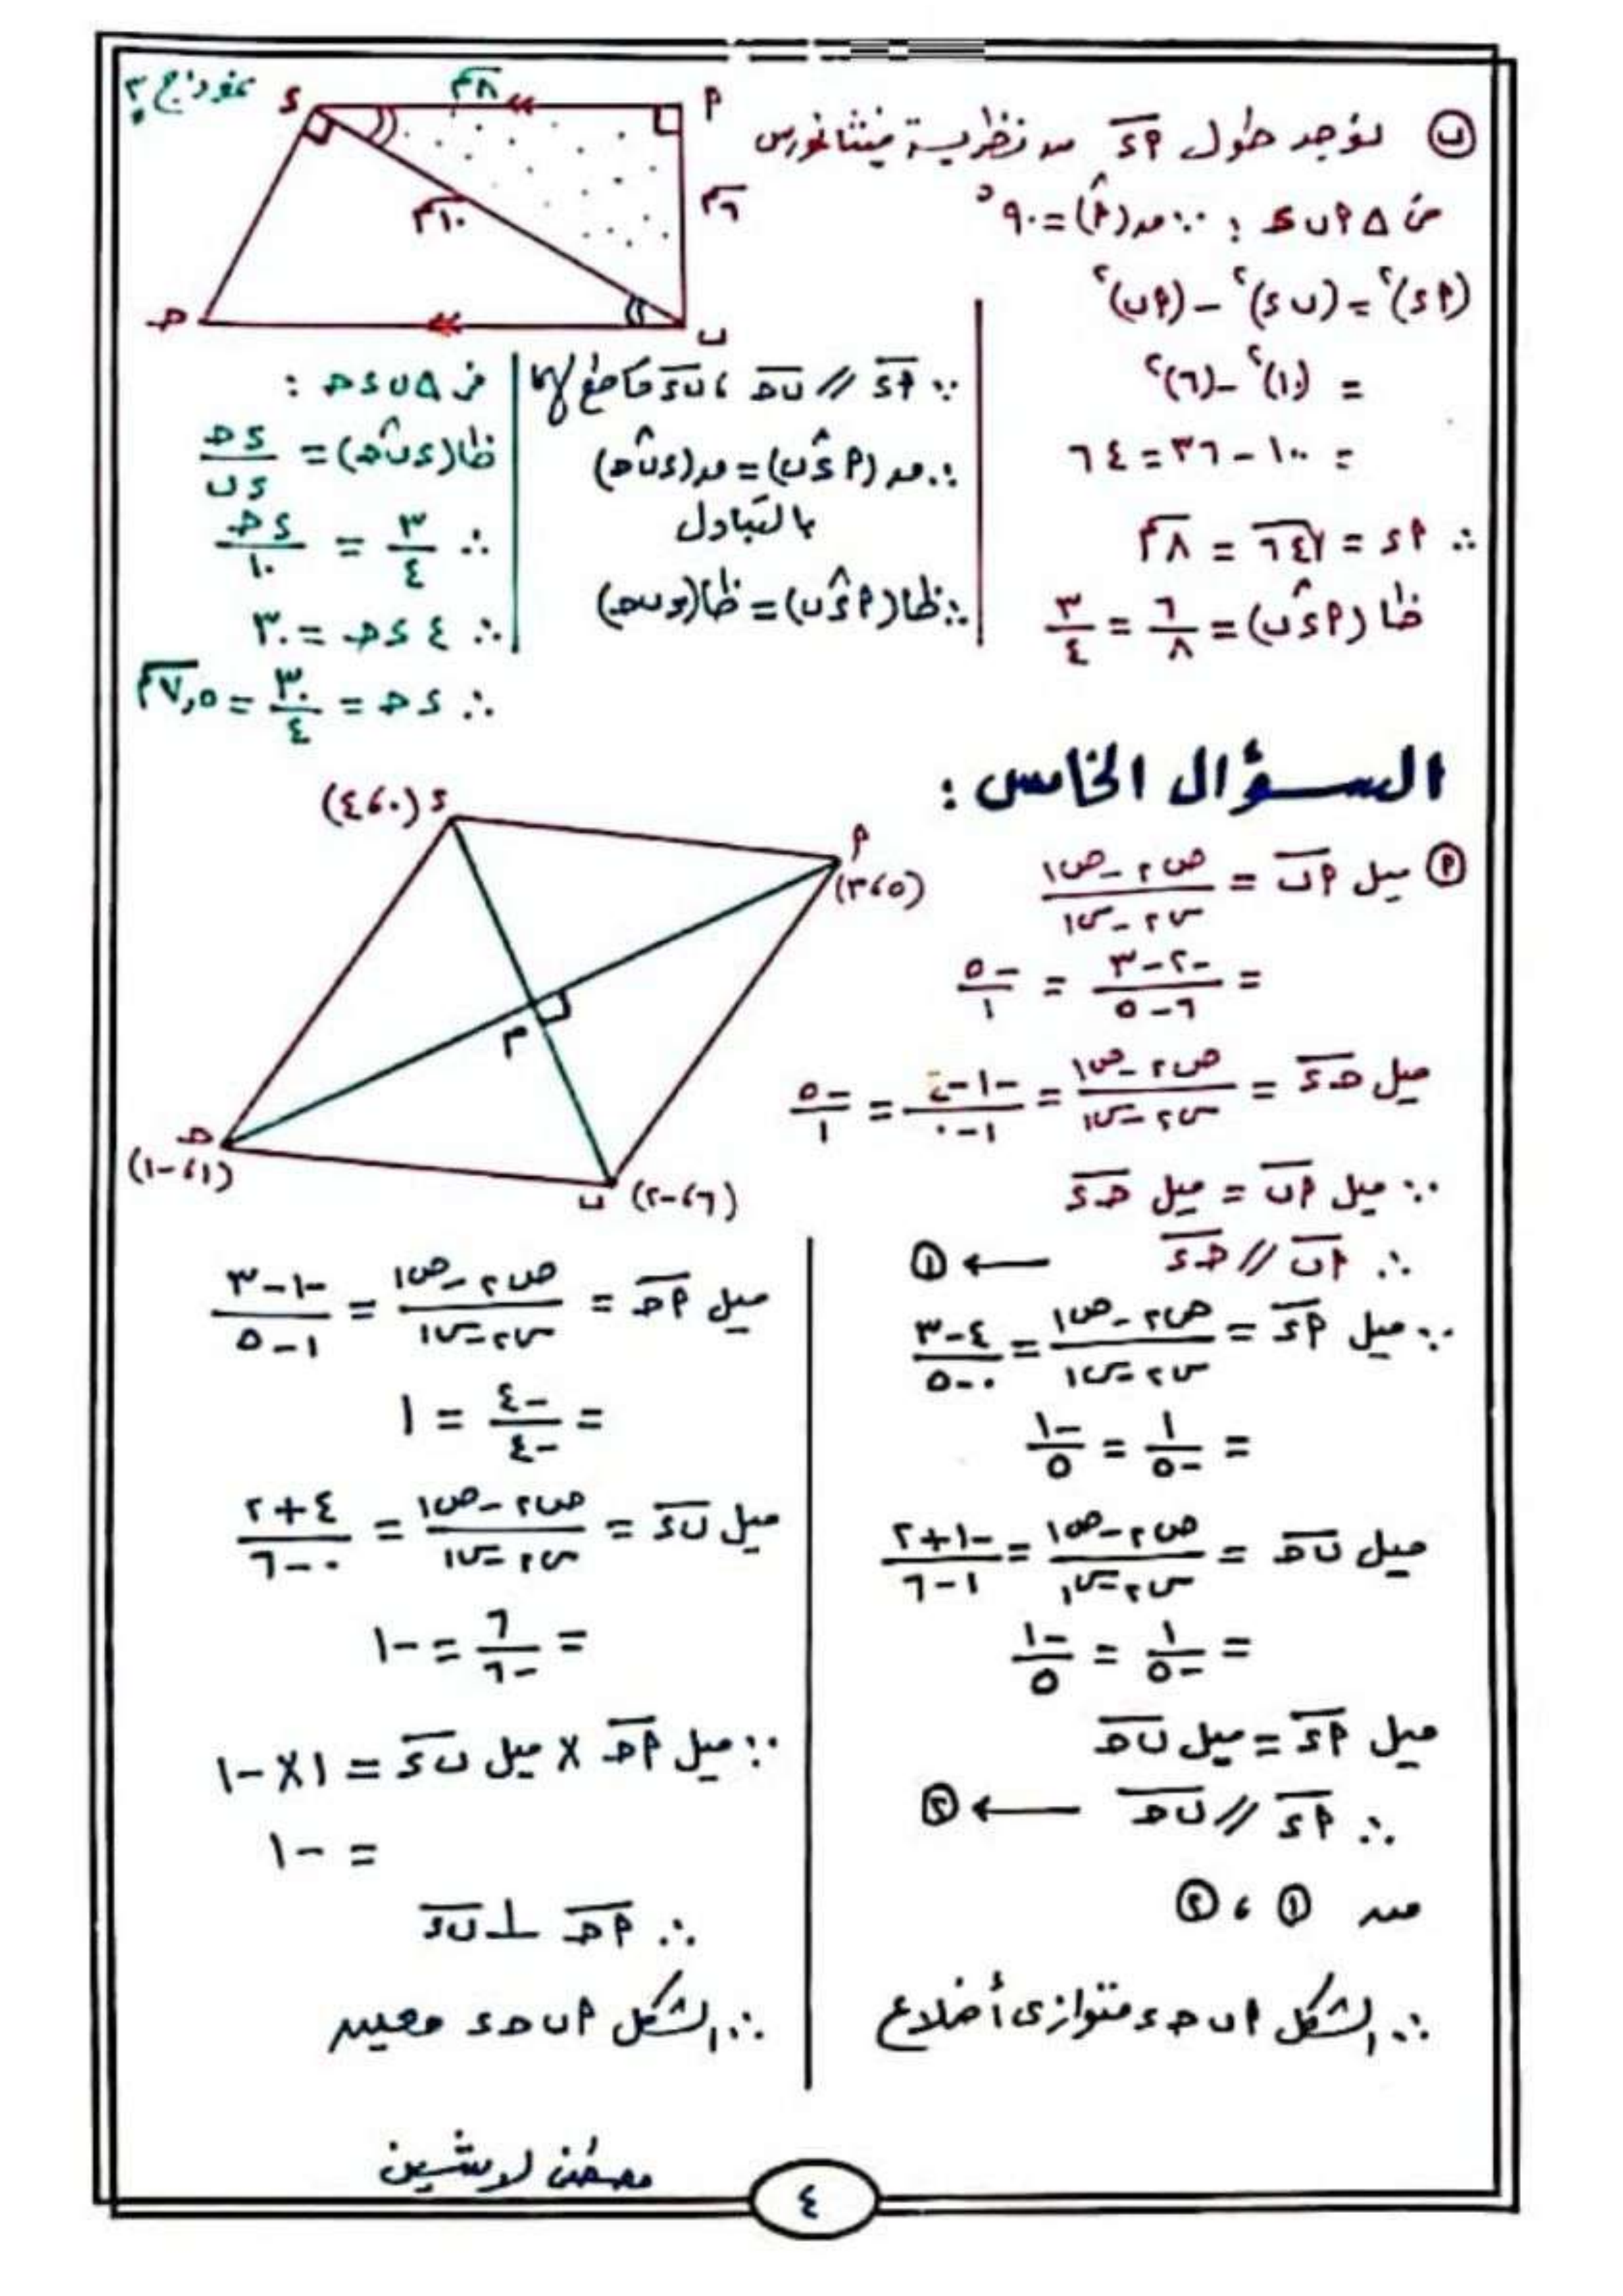 نموذج ٢
ب لنوجد طول أء من نظرية فيثاغورس
فى Δ أ ب ء : ∵ ق(أ^) = ٩٠°
(أء)٢ = (ب ء)٢ – (أب)٢
= (١٠)٢ – (٦)٢
= ١٠٠ – ٣٦ = ٦٤
∴ أء = √٦٤ = ٨سم
ظا (أء^ب) = ٦/٨ = ٣/٤
∵ أء // ب ح ، ب ء قاطع لهما
∴ ق(أء^ب) = ق(ء ب^ح)
بالتبادل
∴ ظا(أء^ب) = ظا(ء ب ح)
فى Δ ب ء ح :
ظا(ء ب^ح) = ء ح/ء ب
∴ ٣/٤ = ء ح/١٠
∴ ٤ ء ح = ٣٠
∴ ء ح = ٣٠/٤ = ٧,٥سم
ء
٨سم
أ
٦سم
١٠سم
ح
ب
السؤال الخامس :
أ ميل أب = ص٢ – ص١/س٢ – س١
= –٢–٣/٦–٥ = –٥/١
ميل ح ء = ص٢ – ص١/س٢ – س١ = –١–٤/١–٠ = –٥/١
∵ ميل أب = ميل ح ء
∴ أب // ح ء ← ١
∵ ميل أء = ص٢ – ص١/س٢ – س١ = ٤–٣/٠–٥
= ١/–٥ = –١/٥
ميل ب ح = ص٢ – ص١/س٢ – س١ = –١+٢/١–٦
= ١/–٥ = –١/٥
ميل أء = ميل ب ح
∴ أء // ب ح ← ٢
من ١ ، ٢
∴ الشكل أ ب ح ء متوازى أضلاع
ء (٠،٤)
أ
(٥،٣)
م
ح
(١،–١)
ب (٦،–٢)
ميل أح = ص٢ – ص١/س٢ – س١ = –١–٣/١–٥
= –٤/–٤ = ١
ميل ب ء = ص٢ – ص١/س٢ – س١ = ٤+٢/٠–٦
= ٦/–٦ = –١
∵ ميل أح × ميل ب ء = ١×–١
= –١
∴ أح ⊥ ب ء
∴ الشكل أ ب ح ء معين
مصطفى لاشين
٤